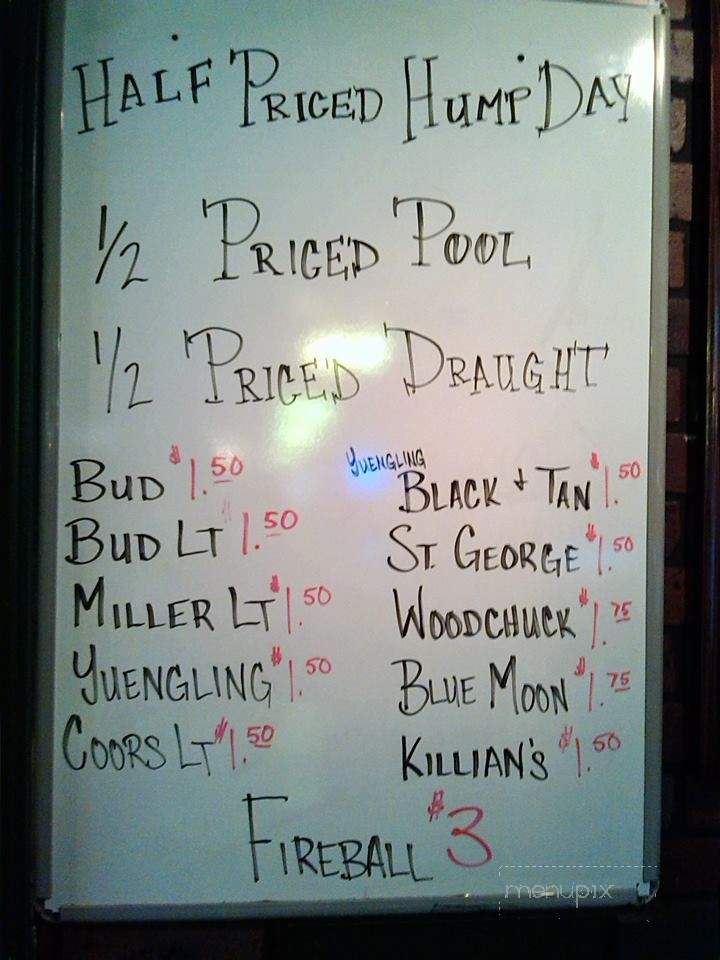 HALF PRICED HUMP DAY
1/2 PRICED POOL
1/2 PRICED DRAUGHT
BUD $1.50
BUD LT $1.50
MILLER LT $1.50
YUENGLING $1.50
COORS LT $1.50
YUENGLING
BLACK + TAN $1.50
ST. GEORGE $1.50
WOODCHUCK $1.75
BLUE MOON $1.75
KILLIAN'S $1.50
FIREBALL $3
menupix